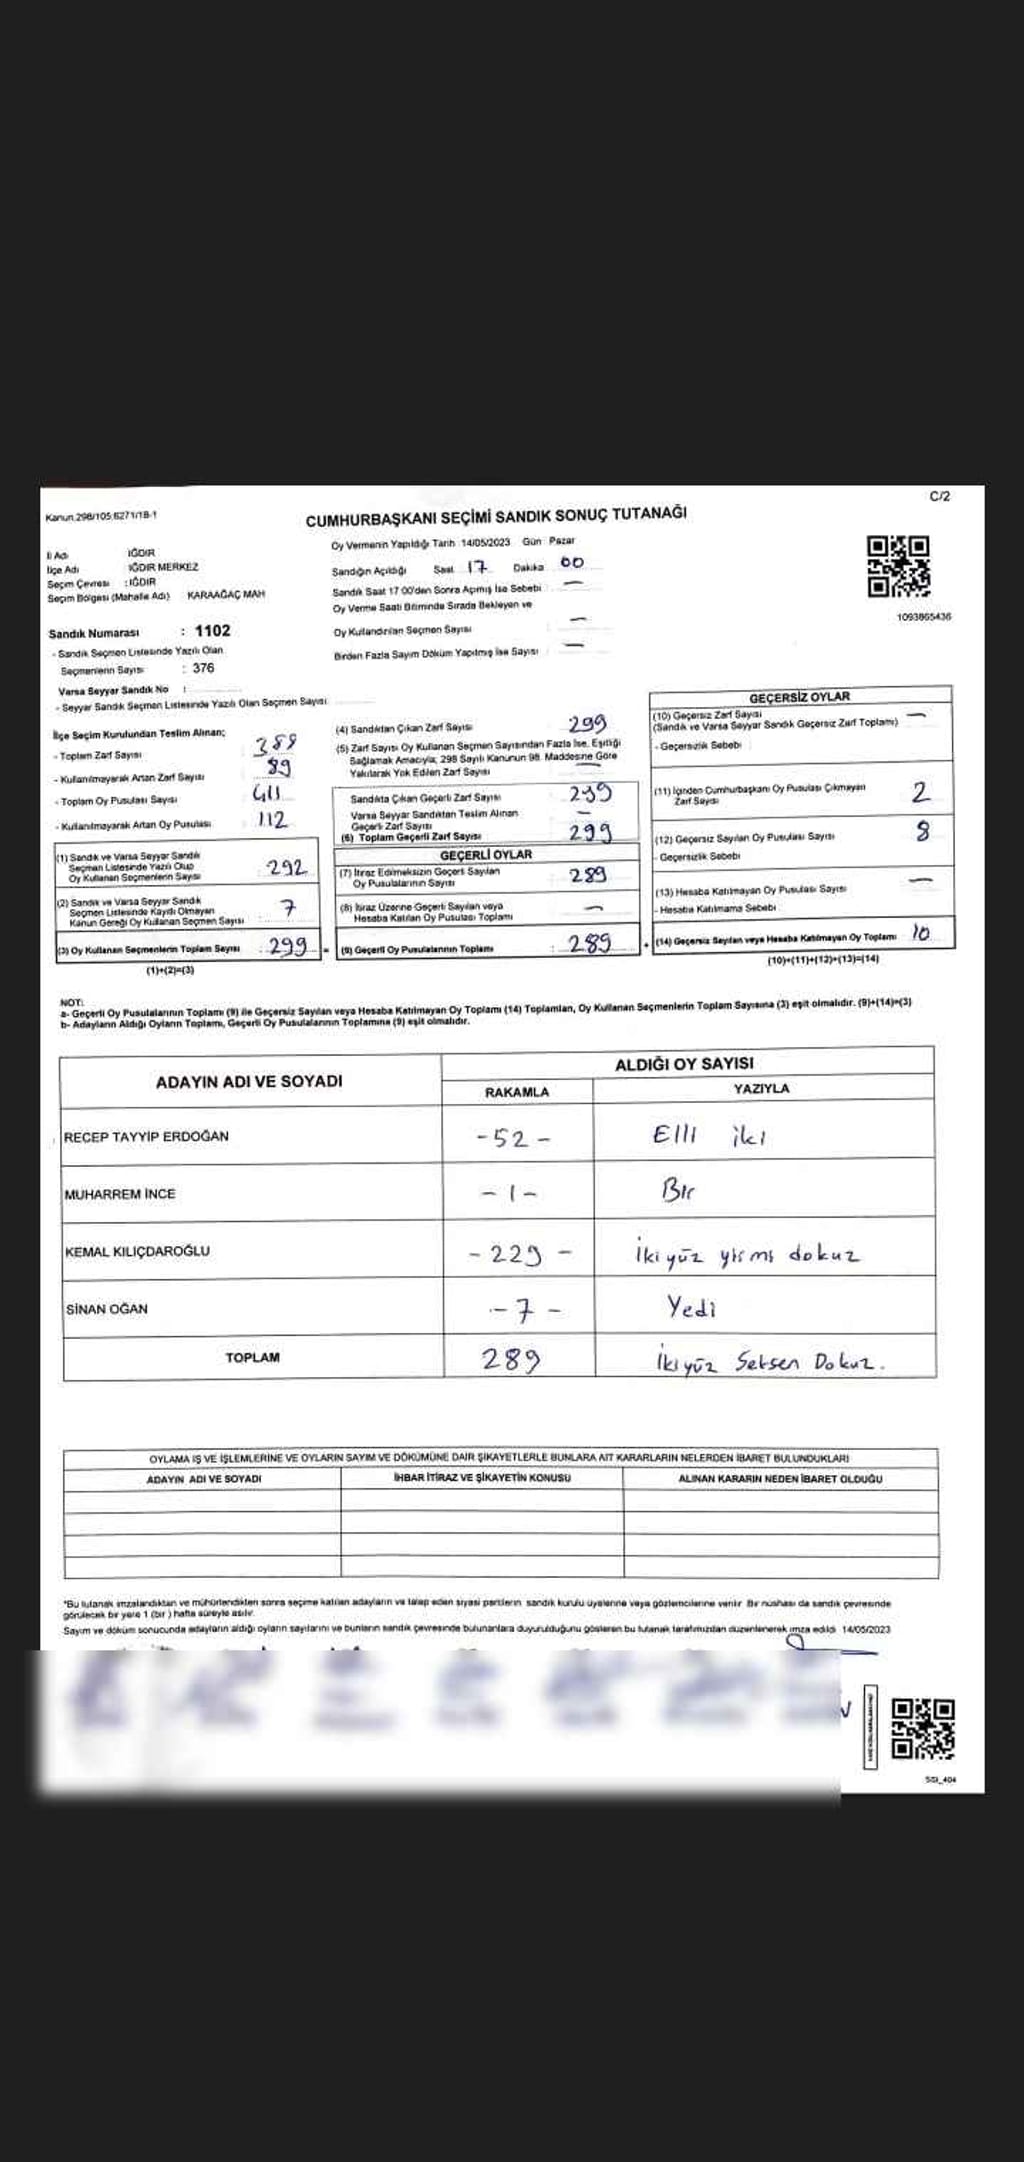 C/2
Kanun.298/105;6271/18-1
CUMHURBAŞKANI SEÇİMİ SANDIK SONUÇ TUTANAĞI
İl Adı IĞDIR
İlçe Adı IĞDIR MERKEZ
Seçim Çevresi : IĞDIR
Seçim Bölgesi (Mahalle Adı) KARAAĞAÇ MAH
Sandık Numarası : 1102
- Sandık Seçmen Listesinde Yazılı Olan
Seçmenlerin Sayısı : 376
Varsa Seyyar Sandık No :
- Seyyar Sandık Seçmen Listesinde Yazılı Olan Seçmen Sayısı
Oy Vermenin Yapıldığı Tarih 14/05/2023 Gün Pazar
Sandığın Açıldığı Saat 17 Dakika 00
Sandık Saat 17 00'den Sonra Açılmış İse Sebebi : —
Oy Verme Saati Bitiminde Sırada Bekleyen ve
Oy Kullandırılan Seçmen Sayısı : —
Birden Fazla Sayım Döküm Yapılmış İse Sayısı : —
1093865436
İlçe Seçim Kurulundan Teslim Alınan;
- Toplam Zarf Sayısı : 388
- Kullanılmayarak Artan Zarf Sayısı : 89
- Toplam Oy Pusulası Sayısı : 411
- Kullanılmayarak Artan Oy Pusulası : 112
(1) Sandık ve Varsa Seyyar Sandık
Seçmen Listesinde Yazılı Olup
Oy Kullanan Seçmenlerin Sayısı : 292
(2) Sandık ve Varsa Seyyar Sandık
Seçmen Listesinde Kayıtlı Olmayan
Kanun Gereği Oy Kullanan Seçmen Sayısı : 7
(3) Oy Kullanan Seçmenlerin Toplam Sayısı : 299 =
(1)+(2)=(3)
(4) Sandıktan Çıkan Zarf Sayısı : 299
(5) Zarf Sayısı Oy Kullanan Seçmen Sayısından Fazla İse, Eşitliği
Sağlamak Amacıyla; 298 Sayılı Kanunun 98. Maddesine Göre
Yakılarak Yok Edilen Zarf Sayısı : —
Sandıkta Çıkan Geçerli Zarf Sayısı : 299
Varsa Seyyar Sandıktan Teslim Alınan
Geçerli Zarf Sayısı : —
(6) Toplam Geçerli Zarf Sayısı : 299
GEÇERLİ OYLAR
(7) İtiraz Edilmeksizin Geçerli Sayılan
Oy Pusulalarının Sayısı : 289
(8) İtiraz Üzerine Geçerli Sayılan veya
Hesaba Katılan Oy Pusulası Toplamı : —
(9) Geçerli Oy Pusulalarının Toplamı : 289 +
GEÇERSİZ OYLAR
(10) Geçersiz Zarf Sayısı : —
(Sandık ve Varsa Seyyar Sandık Geçersiz Zarf Toplamı)
- Geçersizlik Sebebi :
(11) İçinden Cumhurbaşkanı Oy Pusulası Çıkmayan
Zarf Sayısı : 2
(12) Geçersiz Sayılan Oy Pusulası Sayısı : 8
- Geçersizlik Sebebi
(13) Hesaba Katılmayan Oy Pusulası Sayısı : —
- Hesaba Katılmama Sebebi :
(14) Geçersiz Sayılan veya Hesaba Katılmayan Oy Toplamı 10
(10)+(11)+(12)+(13)=(14)
NOT:
a- Geçerli Oy Pusulalarının Toplamı (9) ile Geçersiz Sayılan veya Hesaba Katılmayan Oy Toplamı (14) Toplamları, Oy Kullanan Seçmenlerin Toplam Sayısına (3) eşit olmalıdır. (9)+(14)=(3)
b- Adayların Aldığı Oyların Toplamı, Geçerli Oy Pusulalarının Toplamına (9) eşit olmalıdır.
ADAYIN ADI VE SOYADI ALDIĞI OY SAYISI
RAKAMLA YAZIYLA
RECEP TAYYİP ERDOĞAN -52- Elli iki
MUHARREM İNCE -1- Bir
KEMAL KILIÇDAROĞLU -229- İkiyüz yirmi dokuz
SİNAN OĞAN -7- Yedi
TOPLAM 289 İkiyüz Seksen Dokuz.
OYLAMA İŞ VE İŞLEMLERİNE VE OYLARIN SAYIM VE DÖKÜMÜNE DAİR ŞİKAYETLERLE BUNLARA AİT KARARLARIN NELERDEN İBARET BULUNDUKLARI
ADAYIN ADI VE SOYADI İHBAR İTİRAZ VE ŞİKAYETİN KONUSU ALINAN KARARIN NEDEN İBARET OLDUĞU
*Bu tutanak imzalandıktan ve mühürlendikten sonra seçime katılan adayların ve talep eden siyasi partilerin sandık kurulu üyelerine veya gözlemcilerine verilir Bir nüshası da sandık çevresinde
görülecek bir yere 1 (bir ) hafta süreyle asılır.
Sayım ve döküm sonucunda adayların aldığı oyların sayılarını ve bunların sandık çevresinde bulunanlara duyurulduğunu gösteren bu tutanak tarafımızdan düzenlenerek imza edildi 14/05/2023